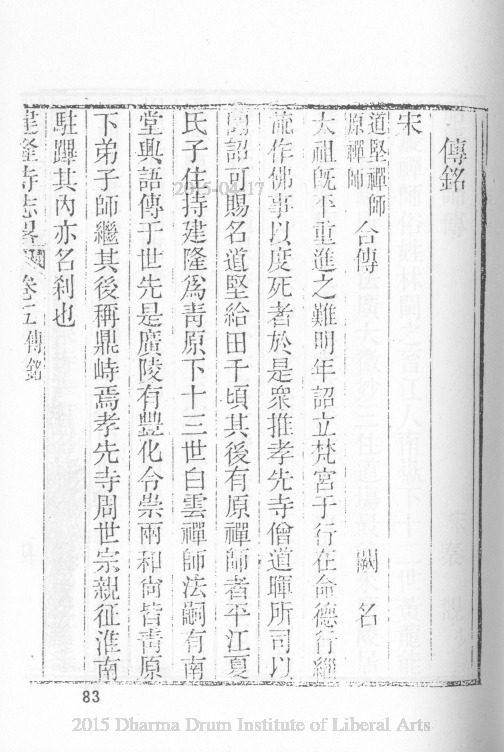 傳銘
宋
道堅禪師
原禪師
合傳 闕名
太祖既平重進之難明年詔立梵宮于行在命德行緇
流作佛事以度死者於是衆推孝先寺僧道暉所司以
聞詔可賜名道堅給田千頃其後有原禪師者平江夏
氏子住持建隆爲靑原下十三世白雲禪師法嗣有南
堂興語傳于世先是廣陵有豐化令崇兩和尙皆靑原
下弟子師繼其後稱鼎峙焉孝先寺周世宗親征淮南
駐蹕其內亦名刹也
建隆寺志畧 卷五 傳銘
83
2015-04-17
2015 Dharma Drum Institute of Liberal Arts